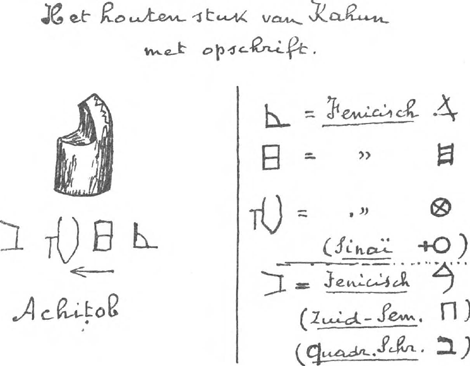 Het houten stuk van Kahun
met opschrift.
Achiṭob
= Fenicisch
= ”
= ”
(Sinaï )
= Fenicisch
(Zuid-Sem. )
(quadr. Schr. ב)